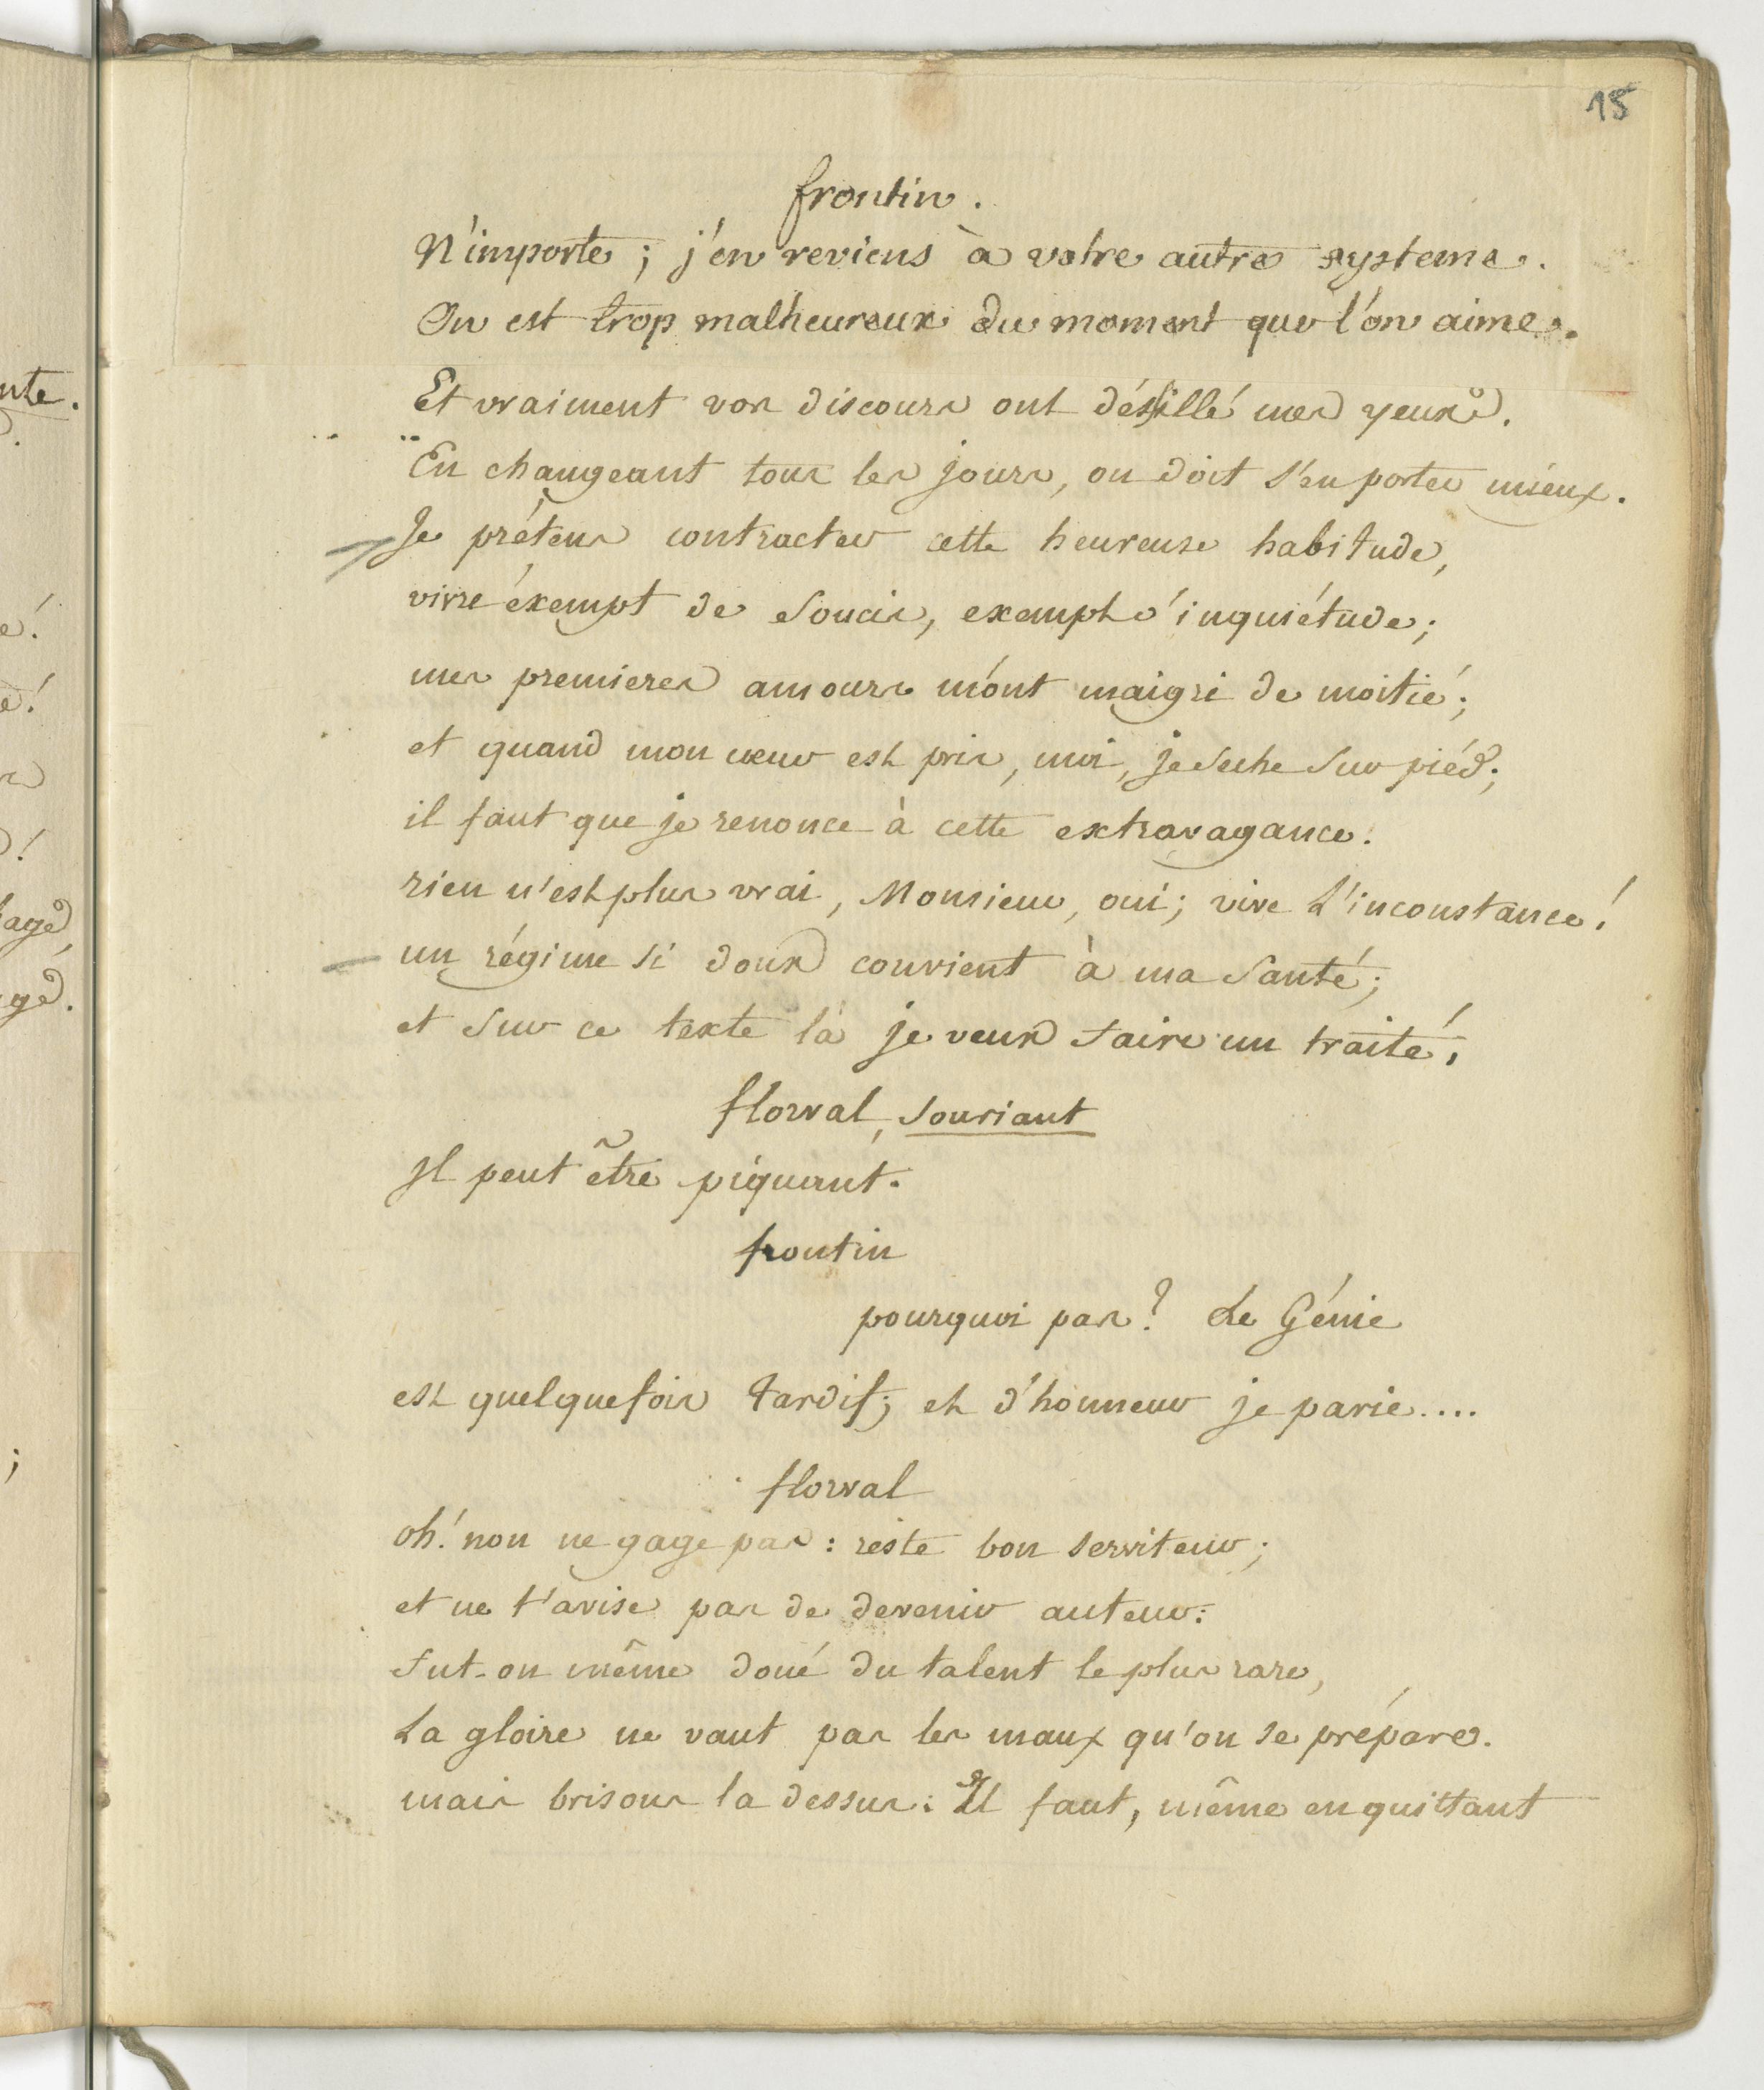 15
frontin.
N'importe ; j'en reviens à votre autre systeme.
On est trop malheureux du moment que l'on aime.
Et vraiment vos discours ont désillé mes yeux.
En changeant tous les jours, on doit s'en porter mieux.
Je prétens contracter cette heureuse habitude,
vivre éxempt de soucis, exempt d'inquiétude;
mes premieres amours m'ont maigri de moitié;
et quand mon cœur est pris, moi, je seche sur piéd;
il faut que je renonce à cette extravagance.
rien n'est plus vrai, Monsieur, oui; vive L'inconstance!
un régime si doux convient à ma santé;
et sur ce texte là je veux faire un traité!
florval, souriant
Il peut être piquant.
frontin
pourquoi pas? Le Génie
est quelquefois tardif; et d'honneur je parie....
florval
oh! non ne gage pas : reste bon serviteur;
et ne t'avise pas de devenir auteur:
fut-on même doué du talent le plus rare,
La gloire ne vaut pas les maux qu'on se prépare.
mais brisons la dessus: Il faut, même en quittant
nte.
é!
é!
age,
ge.
;